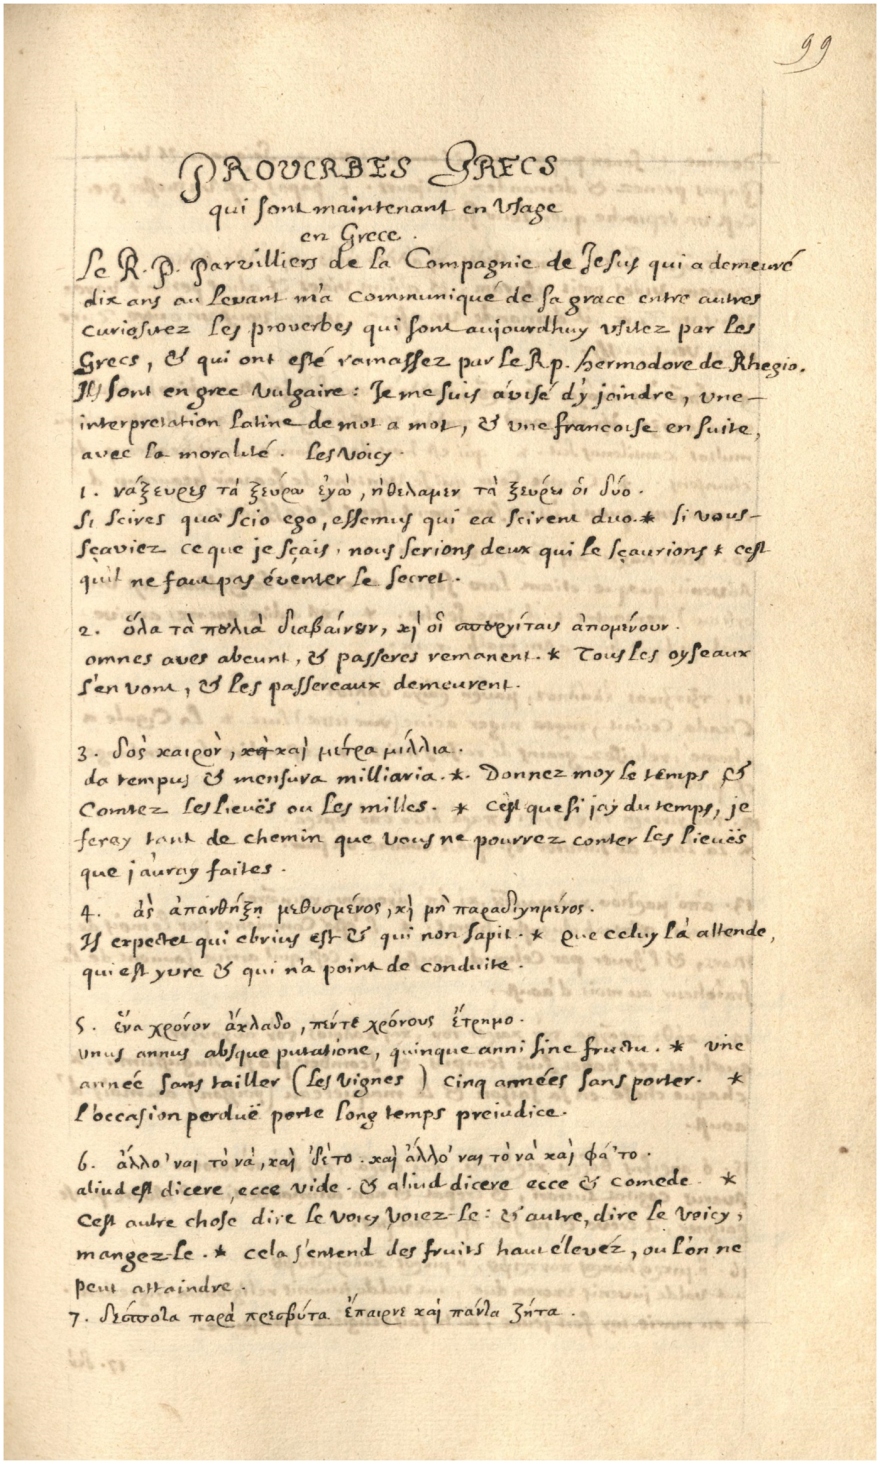 99
PROVERBES GRECS
qui sont maintenant en Usage
en Grece.
Le R. P. Parvilliers de la Compagnie de Jesus qui a demeuré
dix ans au levant m'a communiqué de sa grace entre autres
curiositez les proverbes qui sont aujourdhuy usitez par les
Grecs, & qui ont esté ramassez par le R p. hermodore de Rhegio.
Ils sont en grec vulgaire: Je me suis avisé d'y joindre, une
interpretation latine de mot a mot, & une francoise en suite,
avec la moralité. Les voicy.
1. νάξευρες τὰ ξεύρω ἐγὼ, ἠθελαμεν τὰ ξευρω οἱ δύο.
Si scires quae scio ego, essemus qui ea scirent duo.* si vous
sçaviez ce que je sçais, nous serions deux qui le sçaurions * cest
qu'il ne faut pas éventer le secret.
2. ὅλα τὰ πουλιὰ διαβαίνουν, καὶ οἱ σπουργίταις ἀπομένουν.
omnes aves abeunt, & passeres remanent. * Tous les oyseaux
s'en vont, & les passereaux demeurent.
3. δὸς καιρὸν, καὶ μέτρα μίλλια.
da tempus & mensura milliaria. * Donnez moy le temps &
Comtez les lieuës ou les milles. * C'est que si jay du temps, je
feray tant de chemin que vous ne pourrez conter les lieuës
que j'auray faites.
4. ἂς ἀπανθήξῃ μεθυσμένος, καὶ μὴ παραδιγημένος.
Is expectet qui ebrius est & qui non sapit. * que celuy là attende,
qui est yure & qui n'a point de conduite.
5. ἕνα χρόνον ἄκλαδο, πέντε χρόνους ἔτρημο.
unus annus absque putatione, quinque anni sine fructu. * une
année sans tailler (les vignes) cinq années sans porter. *
l'occasion perduë porte long temps prejudice.
6. ἄλλο 'ναι τὸ νὰ, καὶ 'δὲ το. καὶ ἄλλο 'ναι τὸ νὰ καὶ φά 'το.
aliud est dicere, ecce vide. & aliud dicere ecce & comede. *
Cest autre chose dire le voicy voiez-le: & autre, dire le voicy,
mangez-le. * cela s'entend des fruits haut élevez, ou l'on ne
peut attaindre.
7. δέσποτα παρὰ πρεσβύτα ἔπαιρνε καὶ πάντα ζήτα.